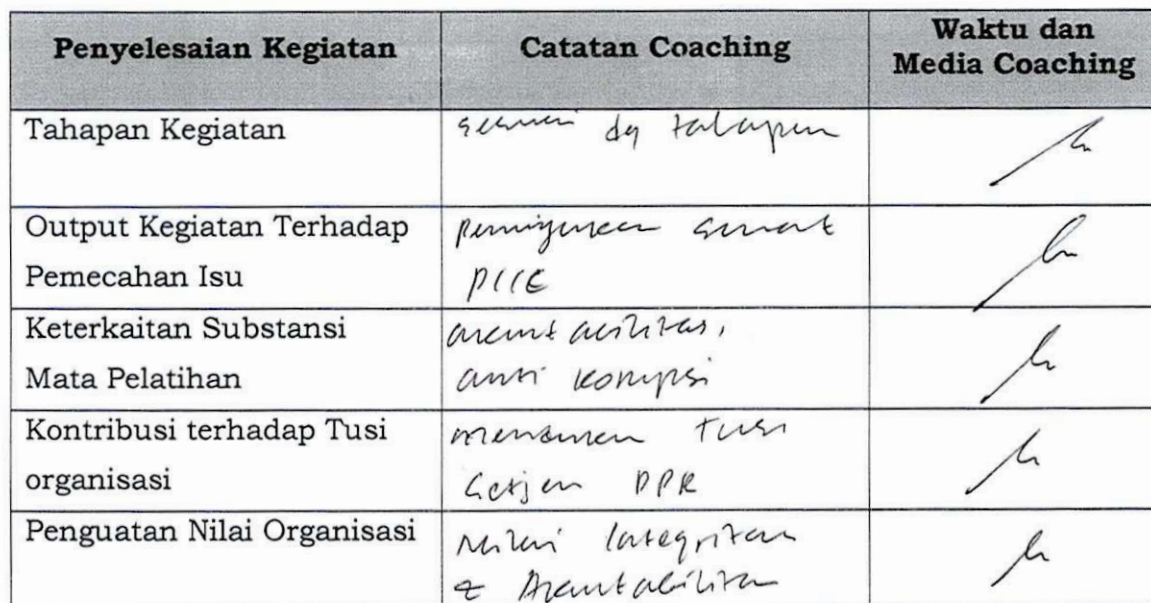 Penyelesaian Kegiatan
Catatan Coaching
Waktu dan
Media Coaching
Tahapan Kegiatan
sesuai dg tahapan
Output Kegiatan Terhadap
Pemecahan Isu
surat
Keterkaitan Substansi
Mata Pelatihan
akuntabilitas,
anti korupsi
Kontribusi terhadap Tusi
organisasi
tusi
Setjen DPR
Penguatan Nilai Organisasi
Nilai Integritas
& Akuntabilitas